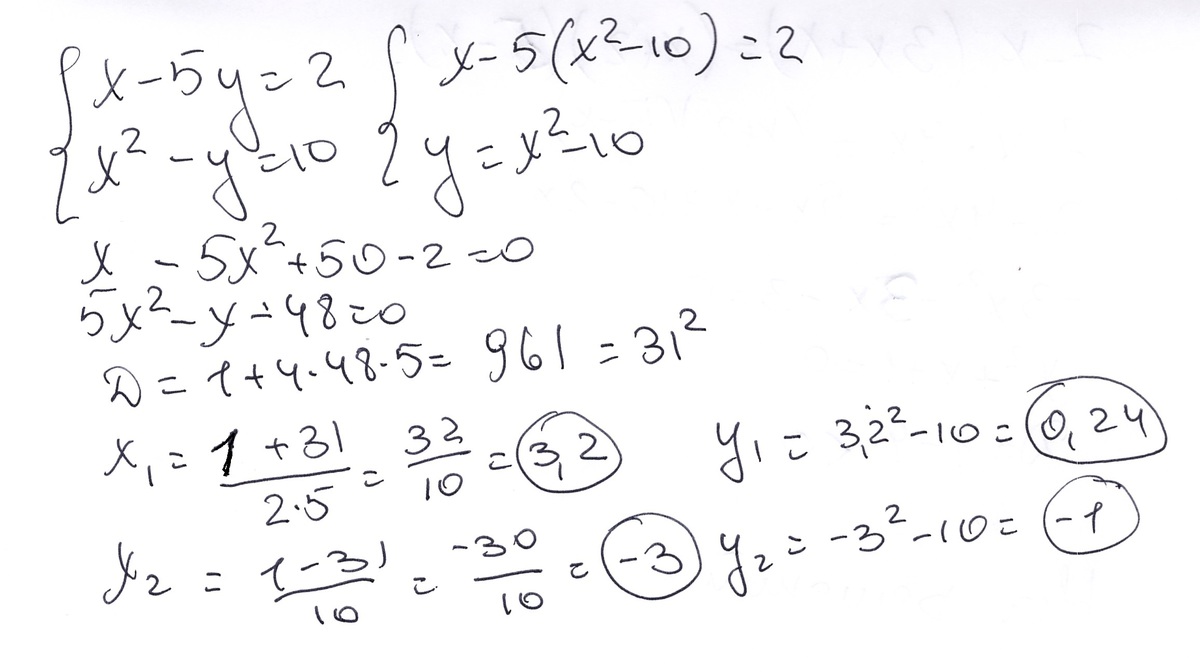 { x - 5y = 2 { x - 5(x² - 10) = 2
x² - y = 10 y = x² - 10
x - 5x² + 50 - 2 = 0
5x² - x - 48 = 0
D = 1 + 4·48·5 = 961 = 31²
x₁ = (1 + 31)/(2·5) = 32/10 = 3,2 y₁ = 3,2² - 10 = 0,24
x₂ = (1 - 31)/10 = -30/10 = -3 y₂ = -3² - 10 = -1